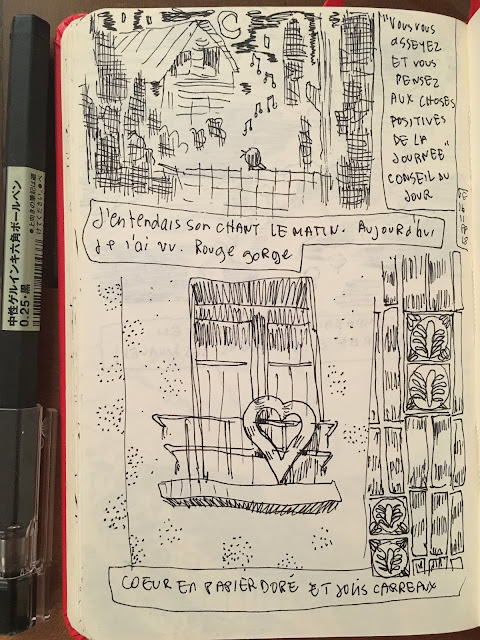 "Vous vous
asseyez
et vous
pensez
aux choses
positives
de la
journée"
conseil du
jour
J'entendais son chant le matin. Aujourd'hui
je l'ai vu. Rouge gorge
Coeur en papier doré et jolis carreaux
中性ゲルインキ六角ボールペン
0.25・黒